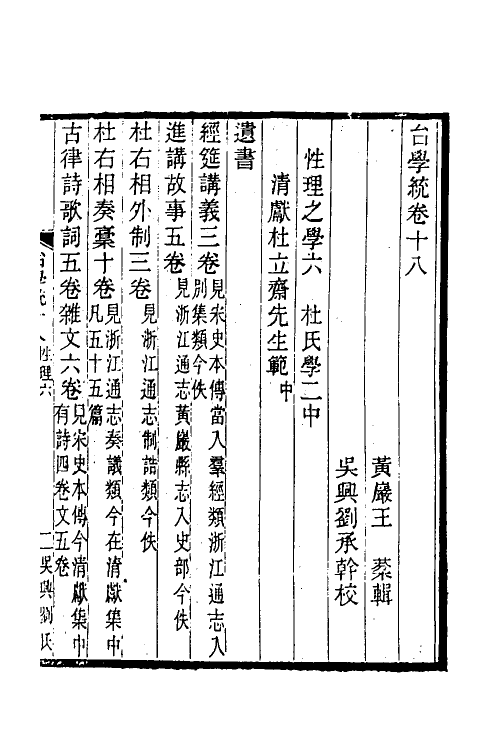 台學統卷十八
黃巖王　棻輯
吳興劉承幹校
性理之學六　杜氏學二中
清獻杜立齋先生範中
遺書
經筵講義三卷見宋史本傳當入羣經類浙江通志入別集類今佚
進講故事五卷見浙江通志黃巖縣志入史部今佚
杜右相外制三卷見浙江通志制誥類今佚
杜右相奏稾十卷見浙江通志奏議類今在清獻集中凡五十五篇
古律詩歌詞五卷雜文六卷見宋史本傳今清獻集中有詩四卷文五卷
台學統十八 性理六　一 吳興劉氏